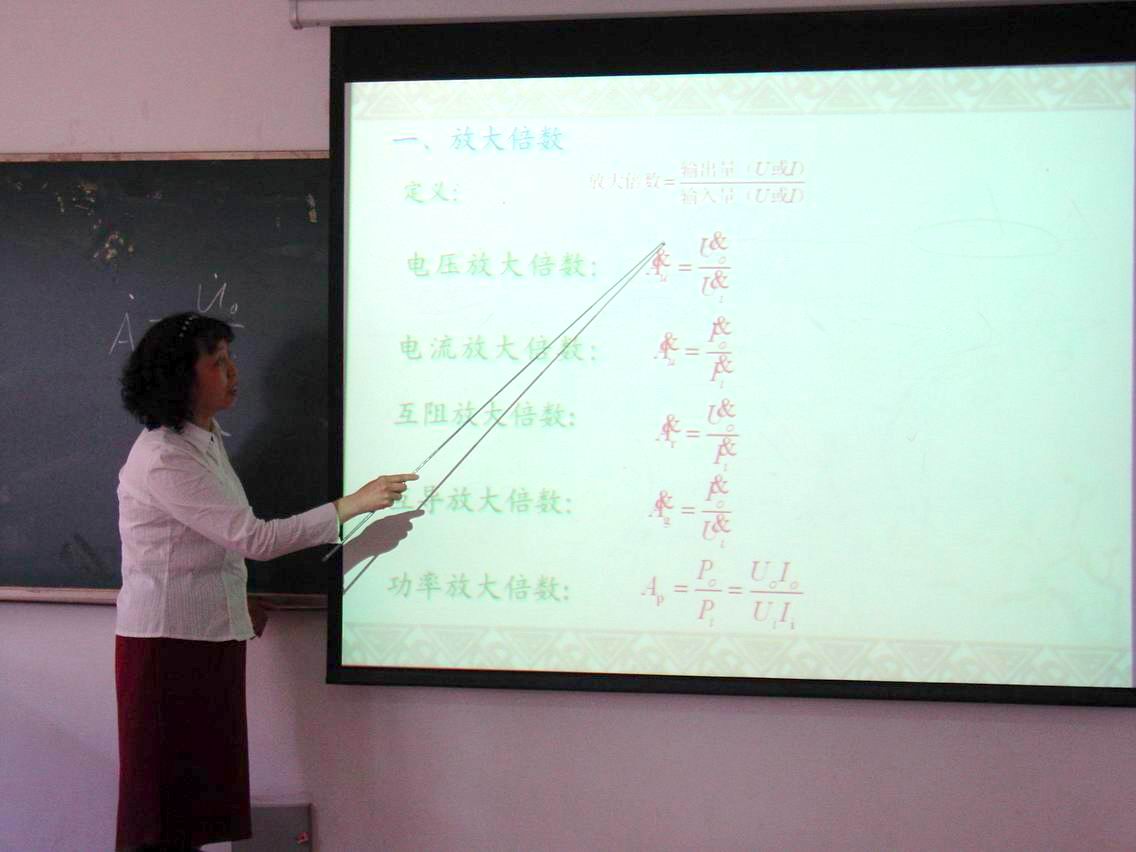 Ȧ = U̇o
一、放大倍数
定义: 放大倍数=输出量（U或I）/输入量（U或I）
电压放大倍数: A&u = U&o/U&i
电流放大倍数: A&u = I&o/I&i
互阻放大倍数: A&r = U&o/I&i
互导放大倍数: A&g = I&o/U&i
功率放大倍数: Ap = Po/Pi = UoIo/UiIi